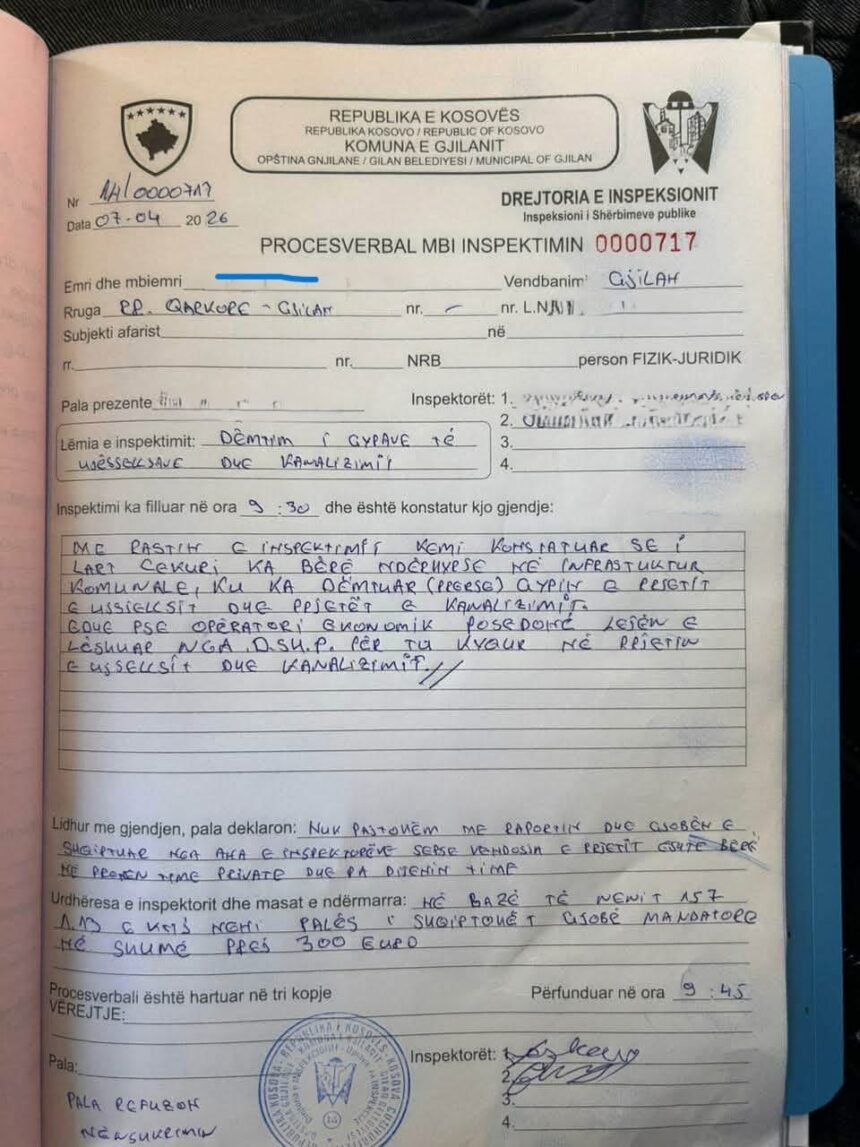 REPUBLIKA E KOSOVËS
REPUBLIKA KOSOVO / REPUBLIC OF KOSOVO
KOMUNA E GJILANIT
OPŠTINA GNJILANE / GILAN BELEDIYESI / MUNICIPAL OF GJILAN
Nr 14/0000717
Data 07-04 2026
DREJTORIA E INSPEKSIONIT
Inspeksioni i Shërbimeve publike
PROCESVERBAL MBI INSPEKTIMIN 0000717
Emri dhe mbiemri Vendbanim GJILAN
Rruga RR. QARKORE - GJILAN nr. - nr. L.N
Subjekti afarist në
rr. nr. NRB person FIZIK-JURIDIK
Pala prezente Inspektorët: 1.
2.
Lëmia e inspektimit: DËMTIM I GYPAVE TË 3.
UJËSSJELLSAVE DHE KANALIZIMIT 4.
Inspektimi ka filluar në ora 9:30 dhe është konstatur kjo gjendje:
ME RASTIN E INSPEKTIMIT KEMI KONSTATUAR SE I
LART CEKURI KA BËRË NDËRHYRSE NË INFRASTUKTUR
KOMUNALE, KU KA DËMTUAR (PRERSE) GYPIN E RRJETIT
E UJSSJELLSIT DHE RRJETËT E KANALIZIMIT.
EDHE PSE OPERATORI EKONOMIK POSEDONË LEJËN E
LËSHUAR NGA D.SH.P. PËR TU KYQUR NË RRJETIN
E UJSSELLSIT DHE KANALIZIMIT.//
Lidhur me gjendjen, pala deklaron: NUK PAJTOHËM ME RAPORTIN DHE GJOBËN E
SHQIPTUAR NGA ANA E INSPEKTORËVE SEPSE VENDOSJA E RRJETIT ËSHTË BËRË
NË PRONEN TIME PRIVATE DHE PA DIJENIN TIME
Urdhëresa e inspektorit dhe masat e ndërmarra: NË BAZË TË NENIT 157
1.13 E PALËS I SHQIPTOHËT GJOBË MANDATORE
NË SHUMË PREJ 300 EURO
Procesverbali është hartuar në tri kopje Përfunduar në ora 9:45
VËREJTJE:
Pala: Inspektorët: 1.
2.
3.
4.
PALA REFUZON
NËNSHKRIMIN